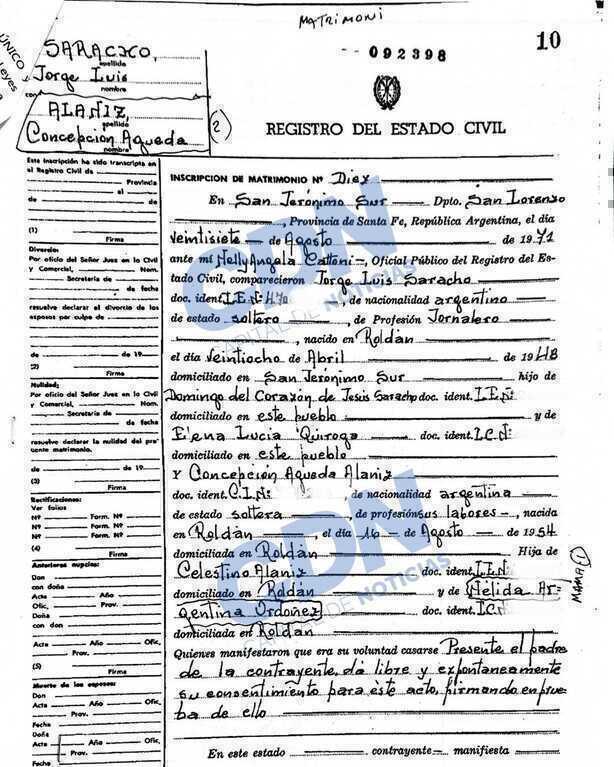 MATRIMONI
10
092398
ÚNICO
Leyes
SARACHO,
apellido
Jorge Luis
nombre
con
ALAÑIZ,
apellido
Concepción Agueda
nombre
(2)
REGISTRO DEL ESTADO CIVIL
Esta inscripción ha sido transcripta en
el Registro Civil de
Provincia
el
de de
(1)
Firma
Divorcio:
Por oficio del Señor Juez en lo Civil
y Comercial, Nom.
Secretaría de
de fecha
resuelve declarar el divorcio de los
esposos por culpa de
de de 19
(2)
Firma
Nulidad:
Por oficio del Señor Juez en lo Civil
y Comercial, Nom.
Secretaría de
de fecha
resuelve declarar la nulidad del pre
sente matrimonio.
de de 19
(3)
Firma
Rectificaciones:
Ver folios
Nº Form. Nº
Nº Form. Nº
Nº Form. Nº
(4)
Firma
Anteriores nupcias:
Don
con doña
Acta Año Ofic.
Ofic. Prov.
Doña
con don
Acta Año Ofic.
Prov.
(5)
Firma
Muerte de los esposos:
Don
Acta Año Ofic.
Prov.
Fecha
Doña
Acta Año Ofic.
Prov.
Fecha
INSCRIPCION DE MATRIMONIO Nº Diez
En San Jerónimo Sur Dpto. San Lorenzo
, Provincia de Santa Fe, República Argentina, el día
veintisiete de Agosto de 1971
ante mí Nelly Angela Cattoni, Oficial Público del Registro del Es-
tado Civil, comparecieron Jorge Luis Saracho
doc. ident. L.E.Nº , de nacionalidad argentino
de estado soltero , de Profesión Jornalero
, nacido en Roldán
el día veintiocho de Abril de 1948
domiciliado en San Jerónimo Sur hijo de
Domingo del Corazón de Jesús Saracho doc. ident. L.E.Nº
domiciliado en este pueblo y de
Elena Lucia Quiroga doc. ident. L.C.Nº
domiciliado en este pueblo
Y Concepción Agueda Alaniz
doc. ident. C.I.Nº , de nacionalidad argentina
de estado soltera , de profesión sus labores , nacida
en Roldán , el día 16 de Agosto de 1954
domiciliada en Roldán Hija de
Celestino Alaniz doc. ident. L.E.Nº
domiciliado en Roldán y de Nélida Ar-
gentina Ordoñez doc. ident. L.C.
domiciliada en Roldán
MAMA (1)
Quienes manifestaron que era su voluntad casarse Presente el padre
de la contrayente, dá libre y expontaneamente
su consentimiento para este acto, firmando en prue
ba de ello
En este estado contrayente manifiesta
CDN
CAPITAL DE NOTICIAS
CDN
CAPITAL DE NOTICIAS